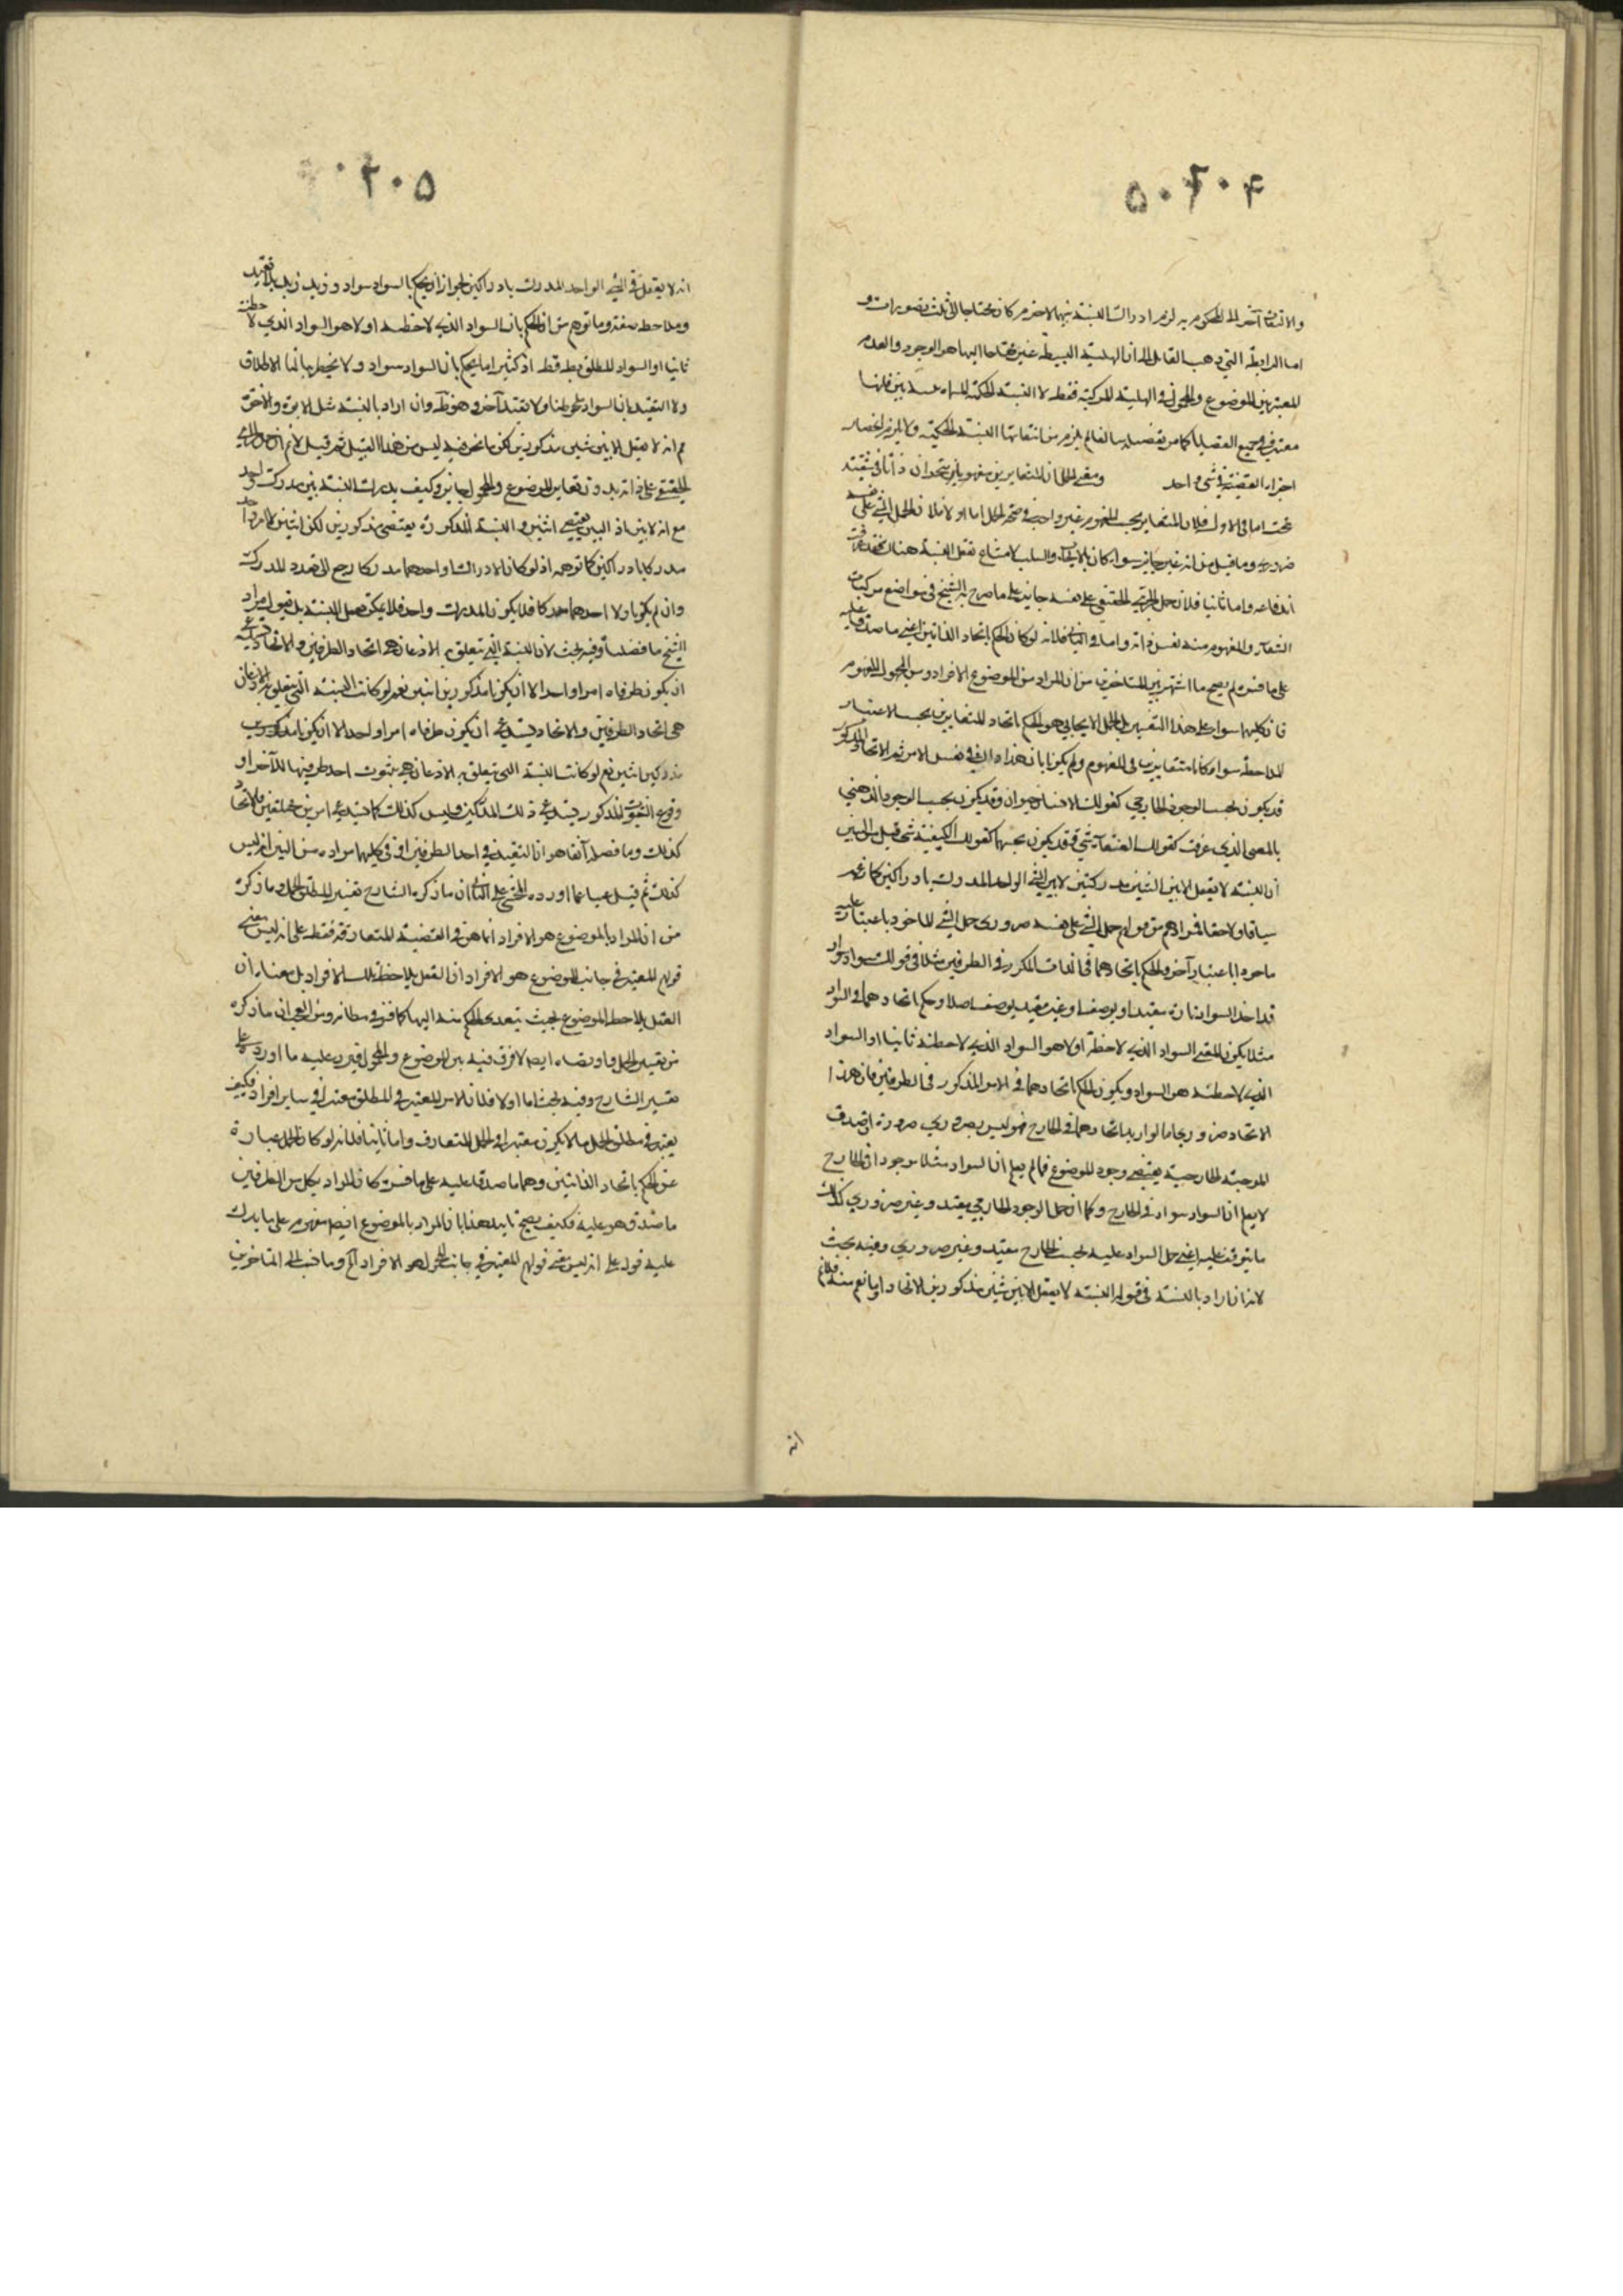 والالتفات آخر الى المحكوم به لزم ادراك النسبة بينهما لاجرم كان محتاجا الى ثلث تصورات و
اما الرابطة التي ذهب القايل الى ان الهلية البسيطة غير محتاجا اليها هو الوجود والعدم
المعتبر بين الموضوع والمحمول في الهلية المركبة فقط لا النسبة الحكمية
معتبر في جميع القضايا كما من انتفائها النسبة الحكمية ولا لزم انحصار
اجزاء القضية في شيء واحد ومعنى الحمل ان المتغايرين مفهوما متحدان ذاتا
بحث اما في الاول فلان المتغاير بحسب المفهوم غير واجب في صحة الحمل اما اولا فلان الحمل الشيء على نفسه
ضروري وما قيل من انه غير جايز سواء كان بالايجاب والسلب لامتناع تعقل النسبة هناك
اندفاعه واما ثانيا فلان حمل الجزئي الحقيقي على نفسه جايز على ما صرح به الشيخ في مواضع من كتاب
الشفاء والمفهوم منه نفس ذاته واما في الثاني فلانه لو كان الحكم باتحاد الذاتين اعني ما صدقا عليه
على ما فسره لم يصح ما اشتهر بين المتاخرين من ان المراد من الموضوع الافراد ومن المحمول المفهوم
فان كليهما سواء على هذا التفسير بل الحمل الايجابي هو الحكم باتحاد المتغايرين بحسب الاعتبار
الملاحظة سواء كانا متغايرين في المفهوم ولم يكونا بان هذا ذاك في نفس الامر ثم الاتحاد المذكور
قد يكون بحسب الوجود الخارجي كقولك الانسان حيوان وقد يكون بحسب الوجود الذهني
بالمعنى الذي عرفت كقولك العنقاء شيء وقد يكون بحسبهما كقولك الكيفية شيء قيل
ان النسبة لا تعقل الا بين الشيئين مدركين لا بين الشيء الواحد المدرك بادراكين كما زعم
سياقا ولاحقا فمرادهم من قولهم حمل الشيء على نفسه ضروري حمل الشيء الماخوذ باعتبار عليه
ماخوذا باعتبار آخر والحكم باتحادهما في الذات المكرر في الطرفين مثلا في قولك السواد سواد
قد اخذ السواد تارة مقيدا بوصف او غير مقيد بوصف اصلا وحكم باتحادهما في السواد
مثلا يكون المعنى السواد الذي لاحظته اولا هو السواد الذي لاحظته ثانيا او السواد
الذي لاحظته هو السواد ويكون الحكم باتحادهما في الامر المذكور في الطرفين فان هذا
الاتحاد ضروري اما لو اريد اتحادهما في الخارج فهو ليس بضروري ضرورة ان صدق
الموجبة الخارجية يقتضي وجود الموضوع فما لم يعلم ان السواد مثلا موجود في الخارج
لا يعلم ان السواد سواد في الخارج وكما ان حمل الوجود الخارجي مقيد وغير ضروري كذلك
ما يتوقف عليه اعني حمل السواد عليه بحسب الخارج مقيد وغير ضروري وفيه بحث
لانه ان اراد بالنسبة في قوله النسبة لا تعقل الا بين شيئين مذكورين الاتحاد او ما نع منه فلانم
انه
انه لا يعقل في الشيء الواحد المدرك بادراكين لجواز ان يحكم بالسواد سواد وزيد زيد بلا تقييد
وملاحظة صفة وما توهم من ان الحكم بان السواد الذي لاحظته اولا هو السواد الذي لاحظته
ثانيا او السواد المطلق فقط اذ كثيرا ما يحكم بان السواد سواد ولا يخطر ببالنا الاطلاق
ولا التقييد بان السواد ملحوظنا ولا تقييد آخر وهو ظاهر وان اراد بالنسبة مثل الابوة والاخوة
مم انه لا يعقل الا بين شيئين مذكورين لكن ما نحن فيه ليس من هذا القبيل ثم قيل
الحقيقي على ذاته بدون تغاير الموضوع والمحمول جايز وكيف يدرك النسبة بين مدرك واحد
مع انه لا بين اذ البين يقتضي اثنين والنسبة المذكورة يقتضي مذكورين لكن اثنين لا امرا واحدا
مدركا بادراكين كما توهمه اذ لو كان الادراك واحدهما مدركا رجع الى تعدد المدرك
وان لم يكونا ولا احدهما مدركا فلا يكون المدرك واحد فلا يمكن حمل النسبة بل نقول مراد
الشيخ ما فصلناه وفيه بحث لان النسبة التي يتعلق بها الاذعان هي اتحاد الطرفين والاتحاد يستدعي
ان يكون طرفاه امرا واحدا لا ان يكونا مذكورين اثنين نعم لو كانت النسبة التي يتعلق بها الاذعان
هي اتحاد الطرفين والاتحاد يستدعي ان يكون طرفاه امرا واحدا لا ان يكونا مذكورين
مدركين اثنين نعم لو كانت النسبة التي يتعلق به الاذعان هي ثبوت احد طرفيها للآخر او
وقوع الثبوت المذكور يستدعي ذلك المدركين وليس كذلك كما يستدعي امرين مختلفين فلا اتحاد
كذلك وما فصله آنفا هو ان التقييد في احد الطرفين او في كليهما مراده من البين انه ليس
كذلك ثم قيل مما اورده المحشي على الثاني ان ما ذكره الشارح تفسير لمطلق الحمل وما ذكره
من ان المراد بالموضوع هو الافراد انما هو في القضية المتعارفة فقط على انه ليس معنى
قولهم المعتبر في جانب الموضوع هو الافراد ان العقل يلاحظ تلك الافراد بل معناه ان
العقل يلاحظ الموضوع بحيث يتعدى الحكم منه اليها كما قرر في مظانه ومن العجب ان ما ذكره
من تفسير الحمل وارتضاه ايضا لا فرق فيه بين الموضوع والمحمول فيرد عليه ما اورده على
تفسير الشارح وفيه بحث اما اولا فلان الامر المعتبر في المطلق معتبر في ساير افراده فكيف
يعتبر في مطلق الحمل ما لا يكون معتبرا في الحمل المتعارف واما ثانيا فلانه لو كان الحمل عبارة
عن الحكم باتحاد الذاتين وهما ما صدقا عليه على ما فسره كان المراد بكل من الطرفين
ما صدق هو عليه فكيف يصح تاييد هذا بان المراد بالموضوع ايضا مفهوم على ما يدل
عليه قوله على انه ليس معنى قولهم المعتبر في جانب المحمول هو الافراد آه وما نسب الى المتاخرين